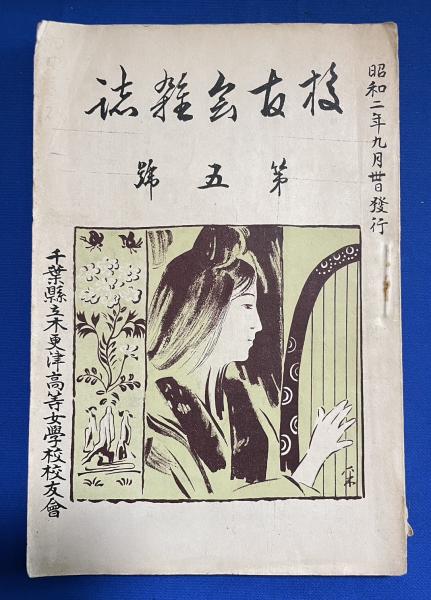 校友会雜誌
第五號
昭和二年九月卅日發行
千葉縣立木更津高等女學校校友會